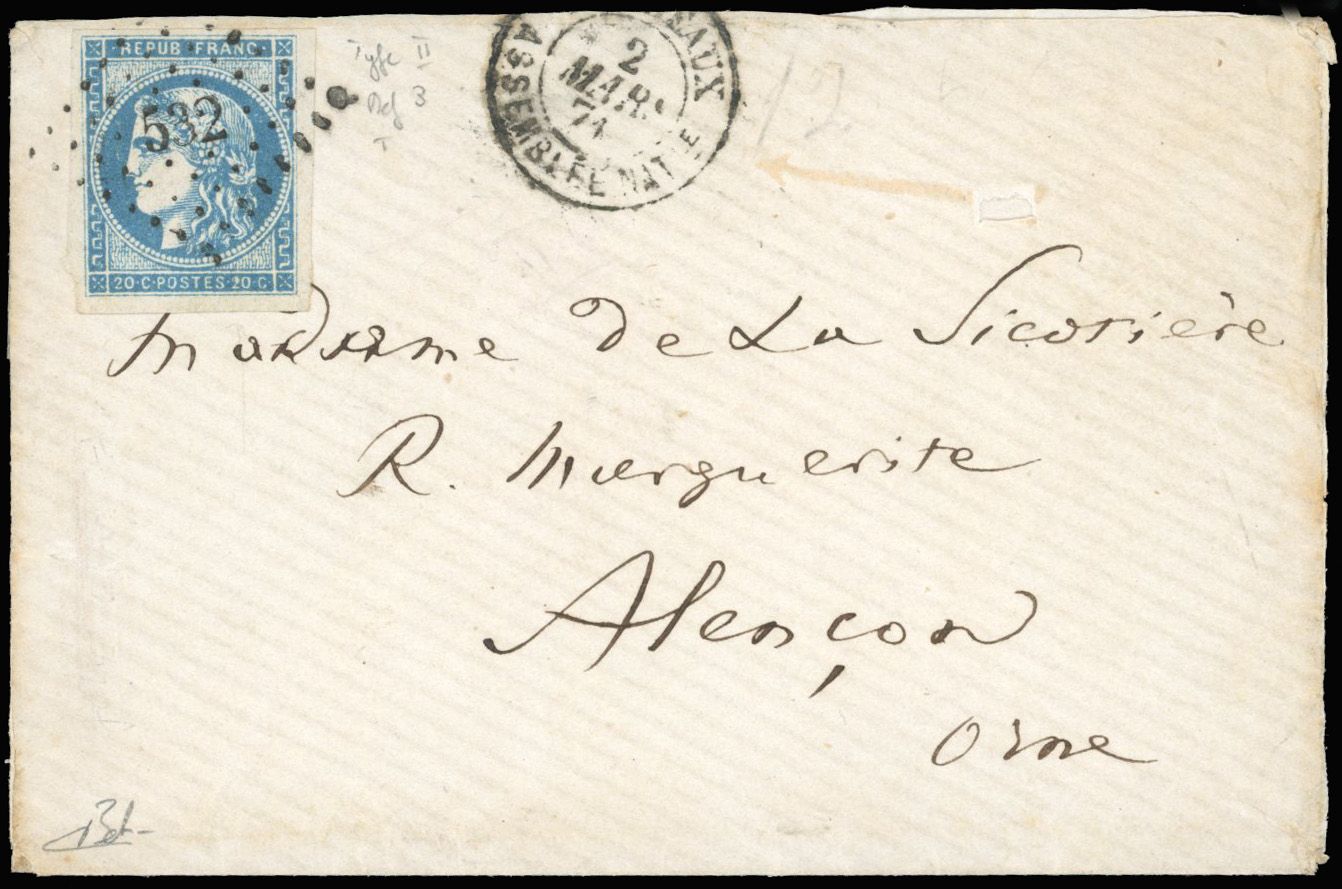 REPUB FRANC
532
20·C·POSTES·20·C
Type II
3
EAUX
2
MARS
71
ASSEMBLÉE NATLE
Madame de La Sicotière
R. Marguerite
Alençon
Orne